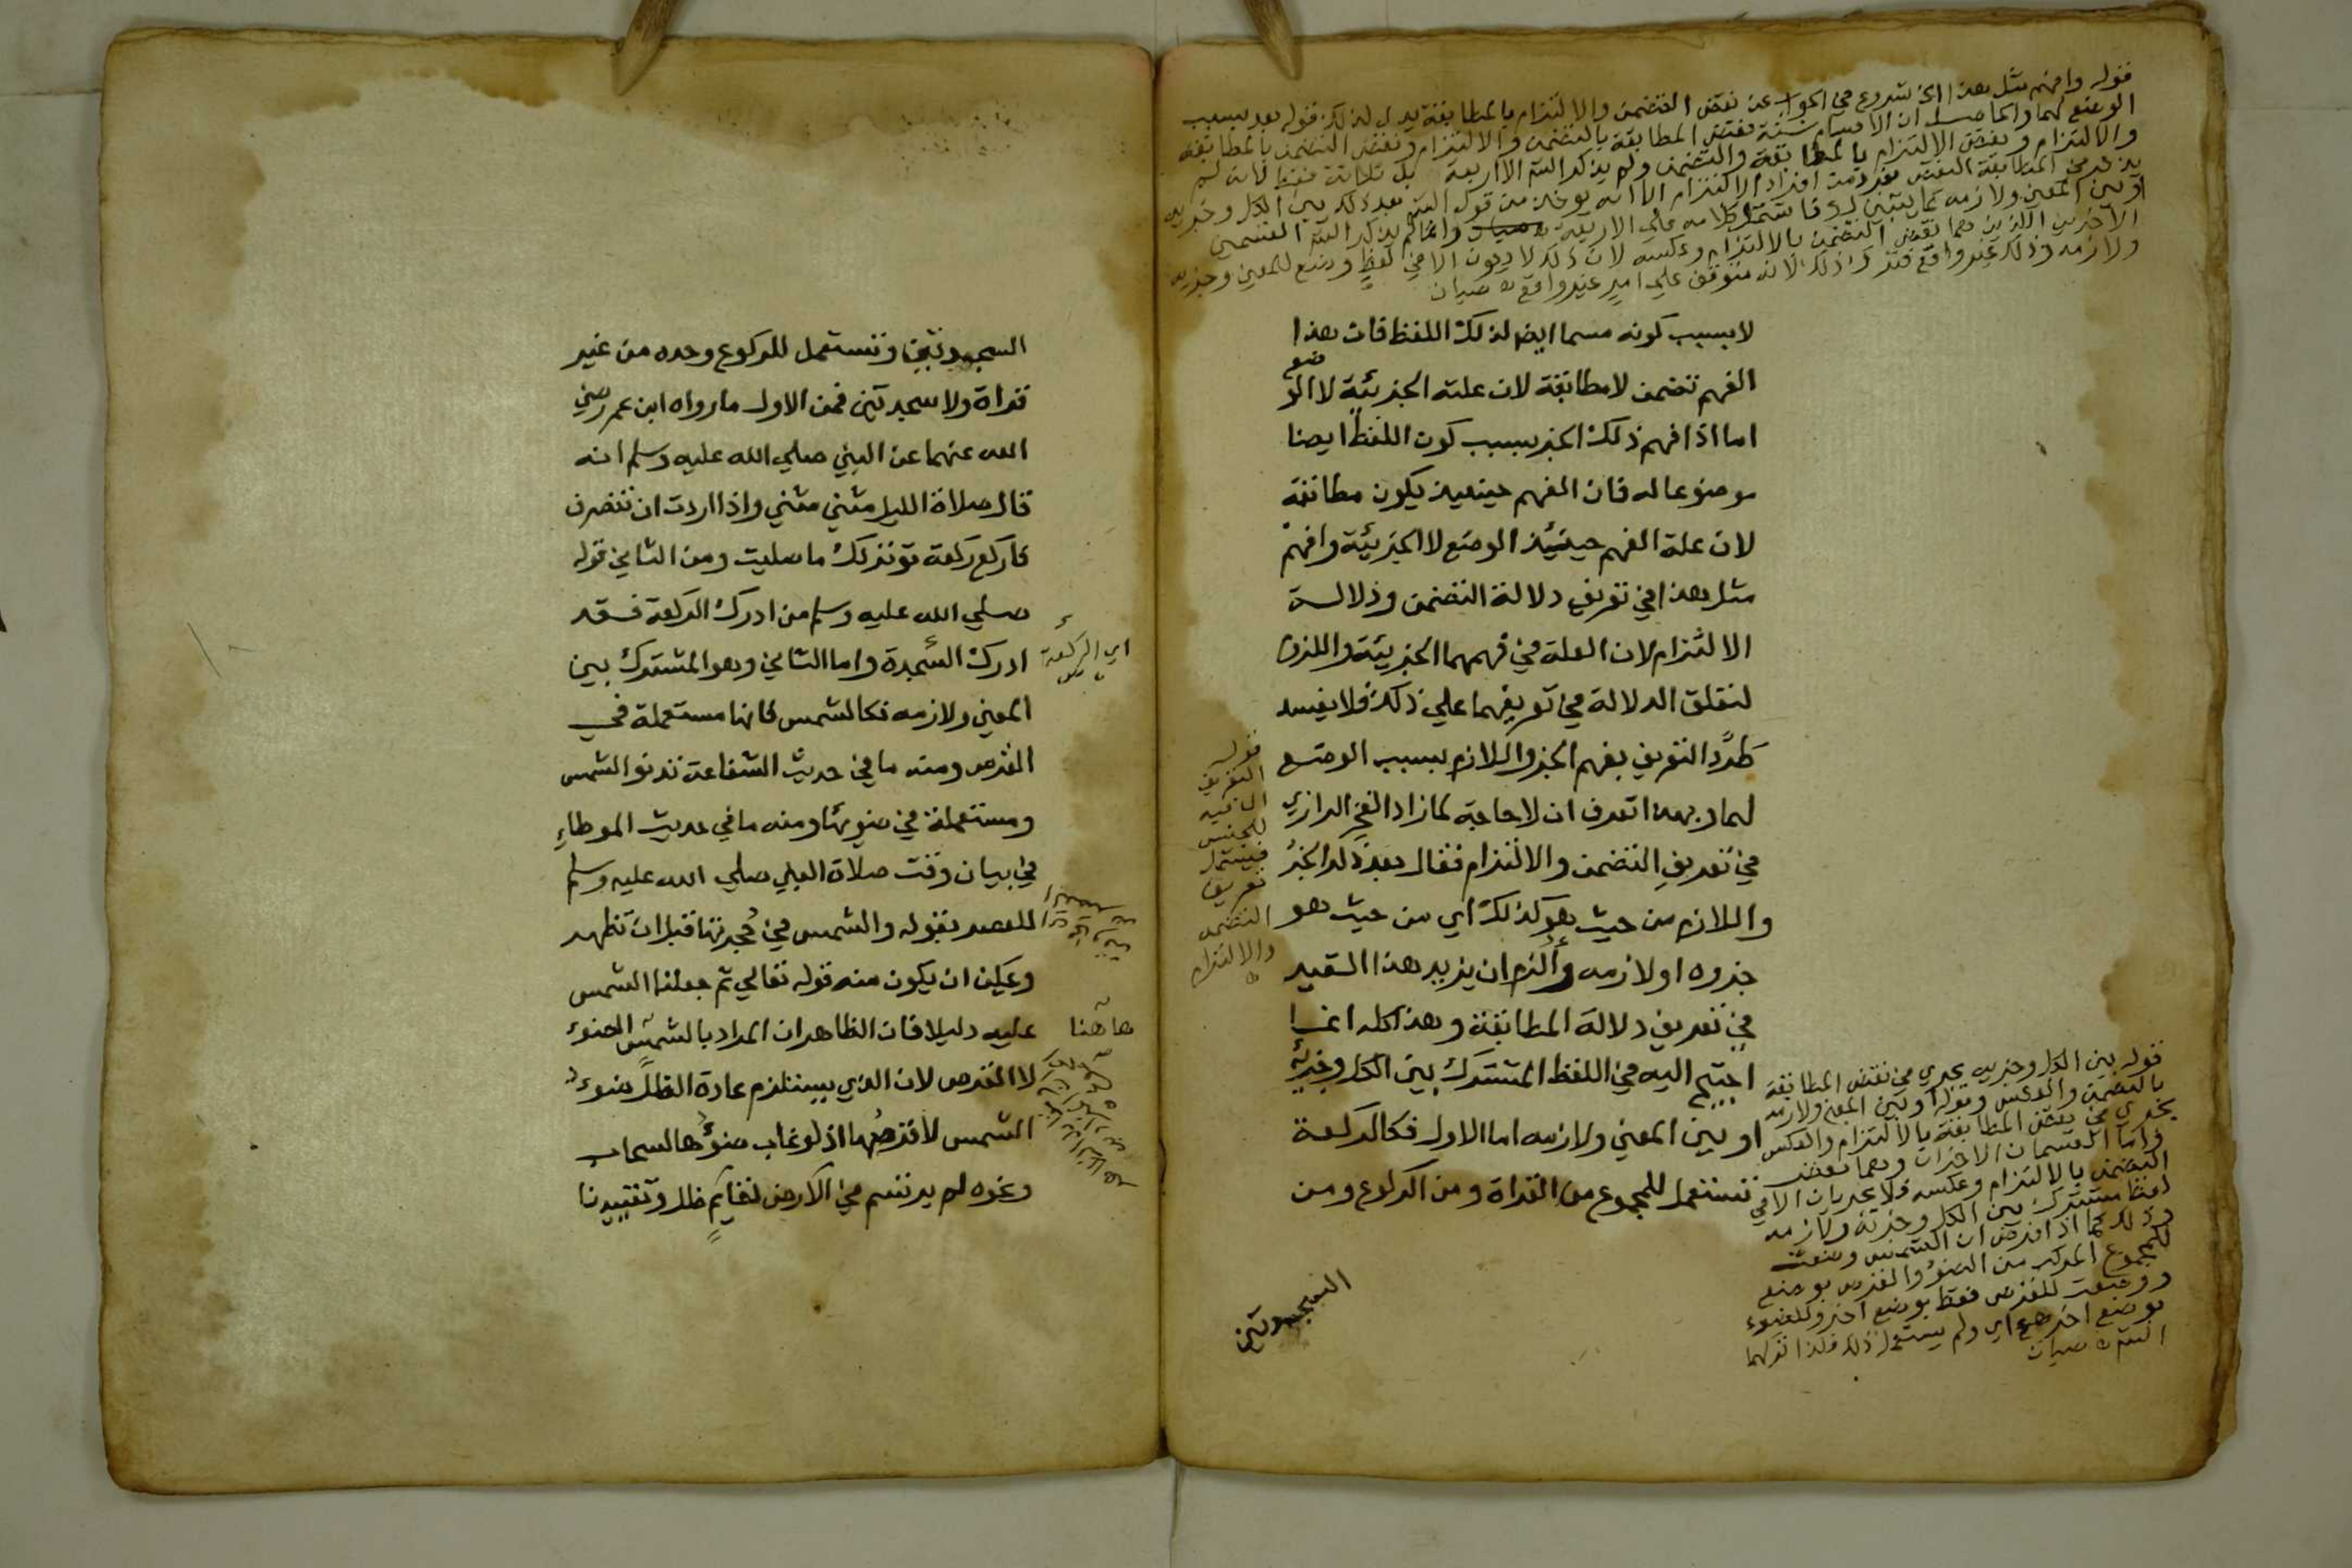 قوله وافهم مثل هذا الخ شروع في الجواب عن نقض التضمن والالتزام بالمطابقة يدل لذلك قوله بعد بسبب
الوضع لهما والحاصل ان الاقسام ستة نقض المطابقة بالتضمن والالتزام ونقض التضمن بالمطابقة
والالتزام ونقض الالتزام بالمطابقة والتضمن ولم يذكر الش الا اربعة بل ثلاثة فقط فانه لم
يذكر في المطابقة النقض
او بين المعنى ولازمه كلامه على الاربعة صبان وانما لم يذكر الش القسمين
الاخرين اللذين هما نقض التضمن بالالتزام وعكسه لان ذلك لا يكون الا في لفظ وضع للمعنى وجزيه
ولازمه وذلك غير واقع فترك ذلك لانه متوقف على امر غير واقع ه صبان
لا بسبب كونه مسما ايض لذلك اللفظ فان هذا
الفهم تضمن لا مطابقة لان علته الجزئية لا الوضع
اما اذا فهم ذلك الجز بسبب كون اللفظ ايضا
موضوعا له فان الفهم حينيذ يكون مطابقة
لان علة الفهم حينئذ الوضع لا الجزئية وافهم
مثل هذا في تعريف دلالة التضمن ودلالة
الالتزام لان العلة في فهمهما الجزئية واللزوم
لتعلق الدلالة في تعريفهما على ذلك فلا يفسد
طرد التعريف بفهم الجز واللازم بسبب الوضع
لهما وبهذا تعرف ان لا حاجة لما زاد الفخر الرازي
في تعريف التضمن والالتزام فقال بعد ذكر الجز
واللازم من حيث هو كذلك اي من حيث هو
جزوه او لازمه وألزم ان يزيد هذا القيد
في تعريف دلالة المطابقة وهذا كله انما
احتيج اليه في اللفظ المشترك بين الكل وجزئه
او بين المعنى ولازمه اما الاول فكالركعة
تستعمل للمجموع من القراة ومن الركوع ومن
السجدتين
قوله
التعريف
ال فيه
للجنس
فيشمل
تعريف
التضمن
والالتزام
ه
قوله بين الكل وجزيه يجري في نقض المطابقة
بالتضمن والعكس وقوله او بين المعنى ولازمه
يجري في نقض المطابقة بالالتزام والعكس
واما القسمان الاخران وهما نقض
التضمن بالالتزام وعكسه فلا يجريان الا في
لفظ مشترك بين الكل وجزئه ولازمه
وذلك كما اذا فرض ان الشمس وضعت
للمجموع المركب من الضوء والقرص بوضع
ووضعت للقرص فقط بوضع اخر وللضوء
بوضع اخر اي ولم يستعمل ذلك فلذا تركهما
الش ه صبان
السجدتين وتستعمل للركوع وحده من غير
قراة ولا سجدتين فمن الاول ما رواه ابن عمر رضي
الله عنهما عن النبي صلي الله عليه وسلم انه
قال صلاة الليل مثني مثني واذا اردت ان تنصرف
فاركع ركعة توتر لك ما صليت ومن الثاني قوله
صلي الله عليه وسلم من ادرك الركعة فقد
ادرك السجدة واما الثاني وهو المشترك بين
المعنى ولازمه فكالشمس فانها مستعملة في
القرص ومنه ما في حديث الشفاعة تدنو الشمس
ومستعملة في ضوئها ومنه ما في حديث الموطاء
في بيان وقت صلاة النبي صلي الله عليه وسلم
للعصر بقوله والشمس في حجرتها قبل ان تظهر
ويمكن ان يكون منه قوله تعالي ثم جعلنا الشمس
عليه دليلا فان الظاهر ان المراد بالشمس الضوء
لا القرص لان الذي يستلزم عادة الظل ضوء
الشمس لا قرصها اذ لو غاب ضوءها السحاب
ونحوه لم يرتسم في الارض لقايم ظل وتقييدنا
اي الركعة
هاهنا